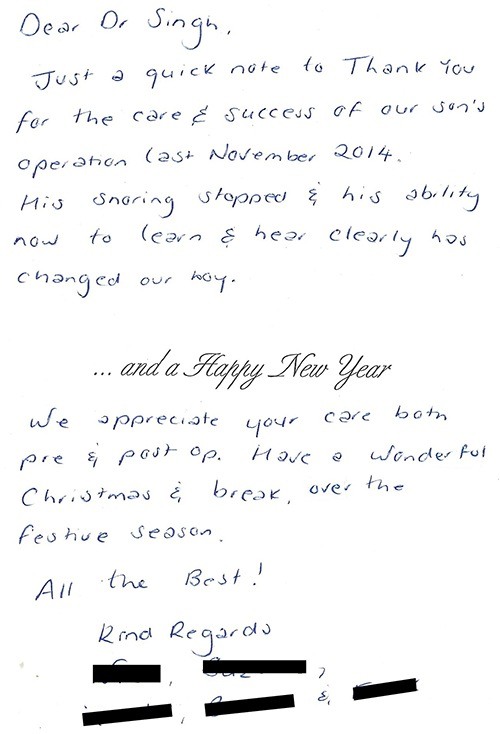 Dear Dr Singh,
Just a quick note to Thank You
for the care & success of our son's
operation last November 2014.
His snoring stopped & his ability
now to learn & hear clearly has
changed our boy.
... and a Happy New Year
We appreciate your care both
pre & post op. Have a wonderful
Christmas & break, over the
festive season.
All the Best!
Kind Regards
, ,
, &